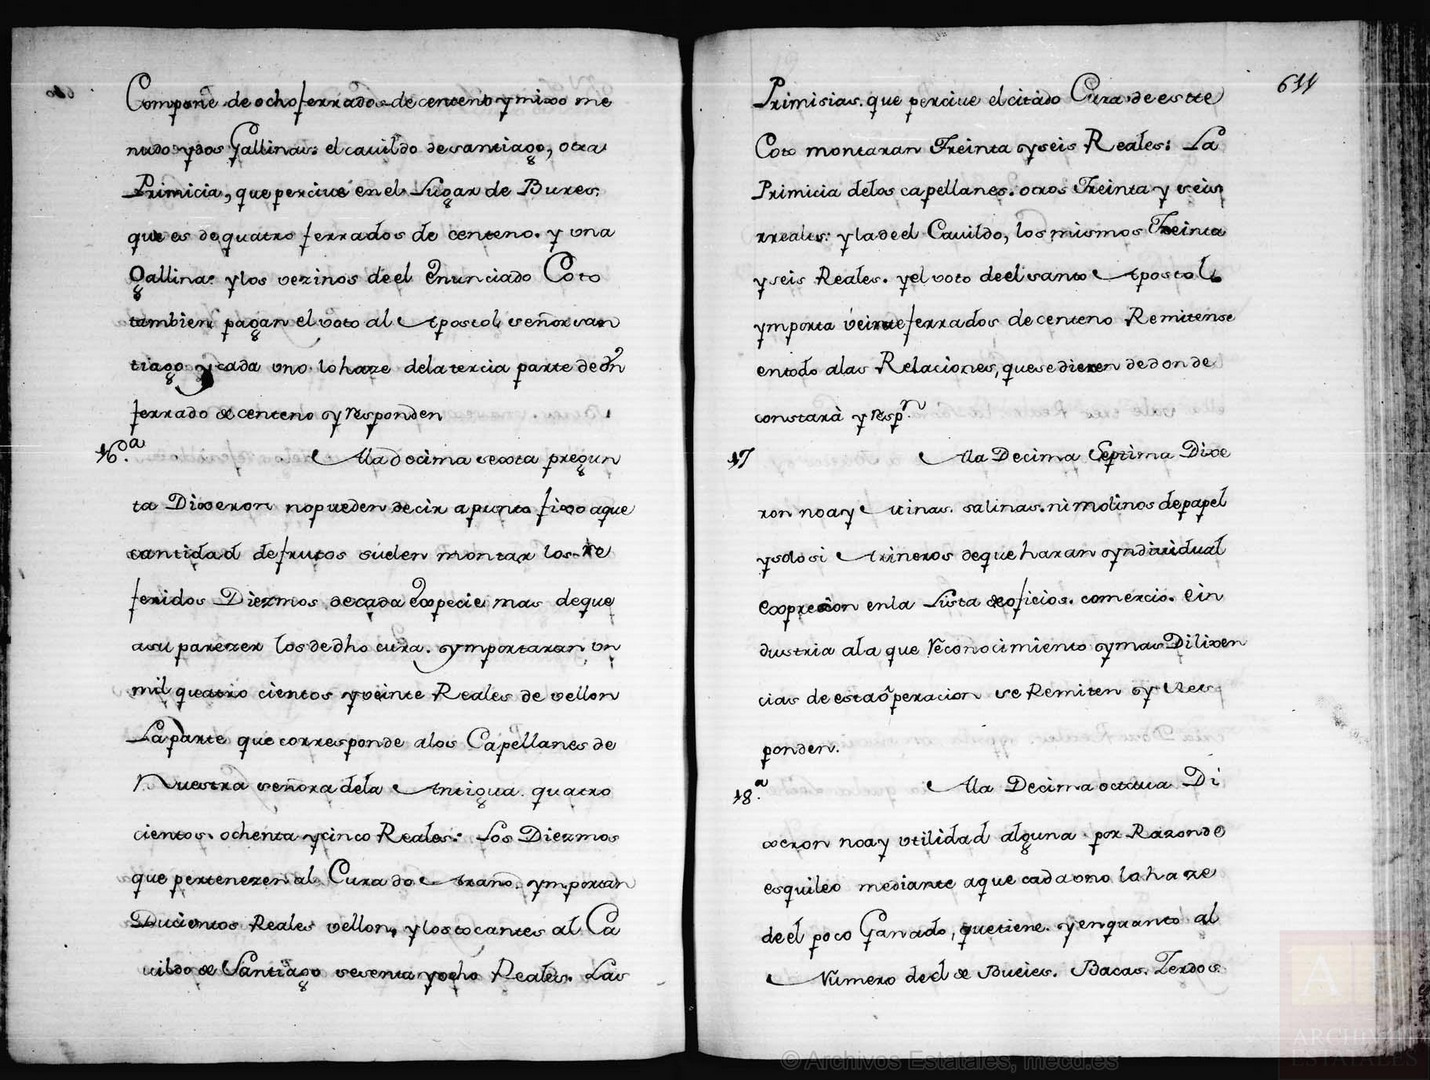 Compone de ocho ferrados de centeno y mixo me
nudo y dos Gallinas: el cavildo de santiago, otra
Primicia, que percive en el Lugar de Bures.
que es de quatro ferrados de centeno. y una
Gallina: y los vezinos de el Enunciado Coto
tambien pagan el voto al Apostol señor san
tiago y cada uno lo haze de la tercia parte de Un
ferrado de centeno y responden
16.ª Ala decima sexta pregun
ta Dixeron no pueden decir a punto fixo a que
cantidad de frutos suelen montar los re
feridos Diezmos de cada Expecie mas de que
a su parezer los de dho cura. ymportaran un
mil quatro cientos y veinte Reales de vellon
La parte que corresponde a los Capellanes de
Nuestra señora de la Antigua. quatro
cientos. ochenta y cinco Reales: Los Diezmos
que pertenezen al Cura de Araño. ymportan
Ducientos Reales vellon, y los tocantes al Ca
vildo de Santiago sesenta y ocho Reales. Las
611
Primisias. que percive el citado Cura de este
Coto montaran Treinta y seis Reales: La
Primicia de los capellanes. otros Treinta y seis
rreales: y la de el Cavildo, los mismos Treinta
y seis Reales. y el voto de el santo Apostol
ymporta veinte ferrados de centeno Remitense
en todo a las Relaciones, que se dieren de donde
constará y resp.n
17 Ala Decima Septima Dixe
ron no ay Minas. salinas. ni molinos de papel
y solo si Arineros de que haran yndividual
Expresion en la Lista de oficios. comercio. E in
dustria a la que reconocimiento y mas Dilixen
cias de esta operacion se Remiten y Res
ponden.
18.ª Ala Decima octava Di
xeron no ay utilidad alguna por Razon de
esquileo mediante a que cada uno la haze
de el poco Ganado, que tiene. y en quanto al
Numero de el de Bueies. Bacas. Zerdos
© Archivos Estatales, mecd.es
ARCHIVOS
ESTATALES